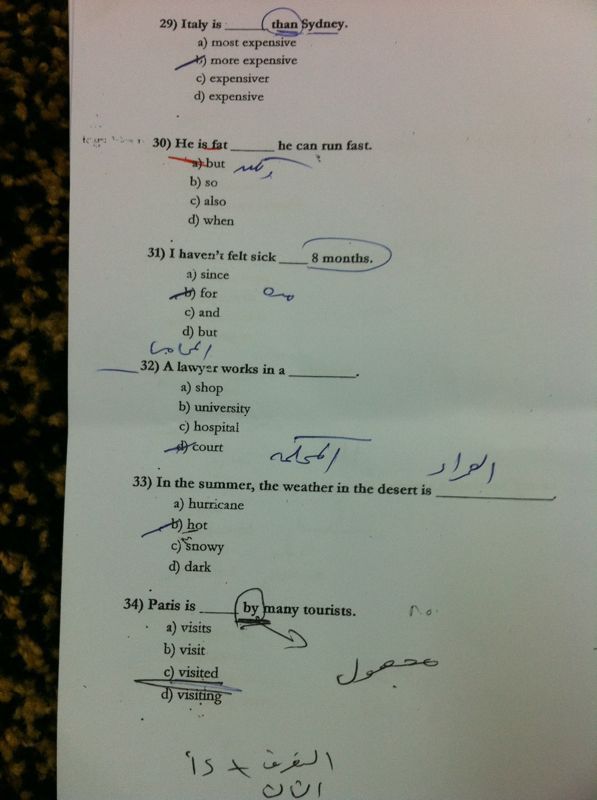 29) Italy is ______ than Sydney.
a) most expensive
b) more expensive
c) expensiver
d) expensive
30) He is fat ______ he can run fast.
a) but
b) so
c) also
d) when
31) I haven't felt sick ____ 8 months.
a) since
b) for
c) and
d) but
32) A lawyer works in a _________.
a) shop
b) university
c) hospital
d) court
المحكمة
33) In the summer, the weather in the desert is _______________.
a) hurricane
b) hot
c) snowy
d) dark
34) Paris is _____ by many tourists.
no.
a) visits
b) visit
c) visited
d) visiting